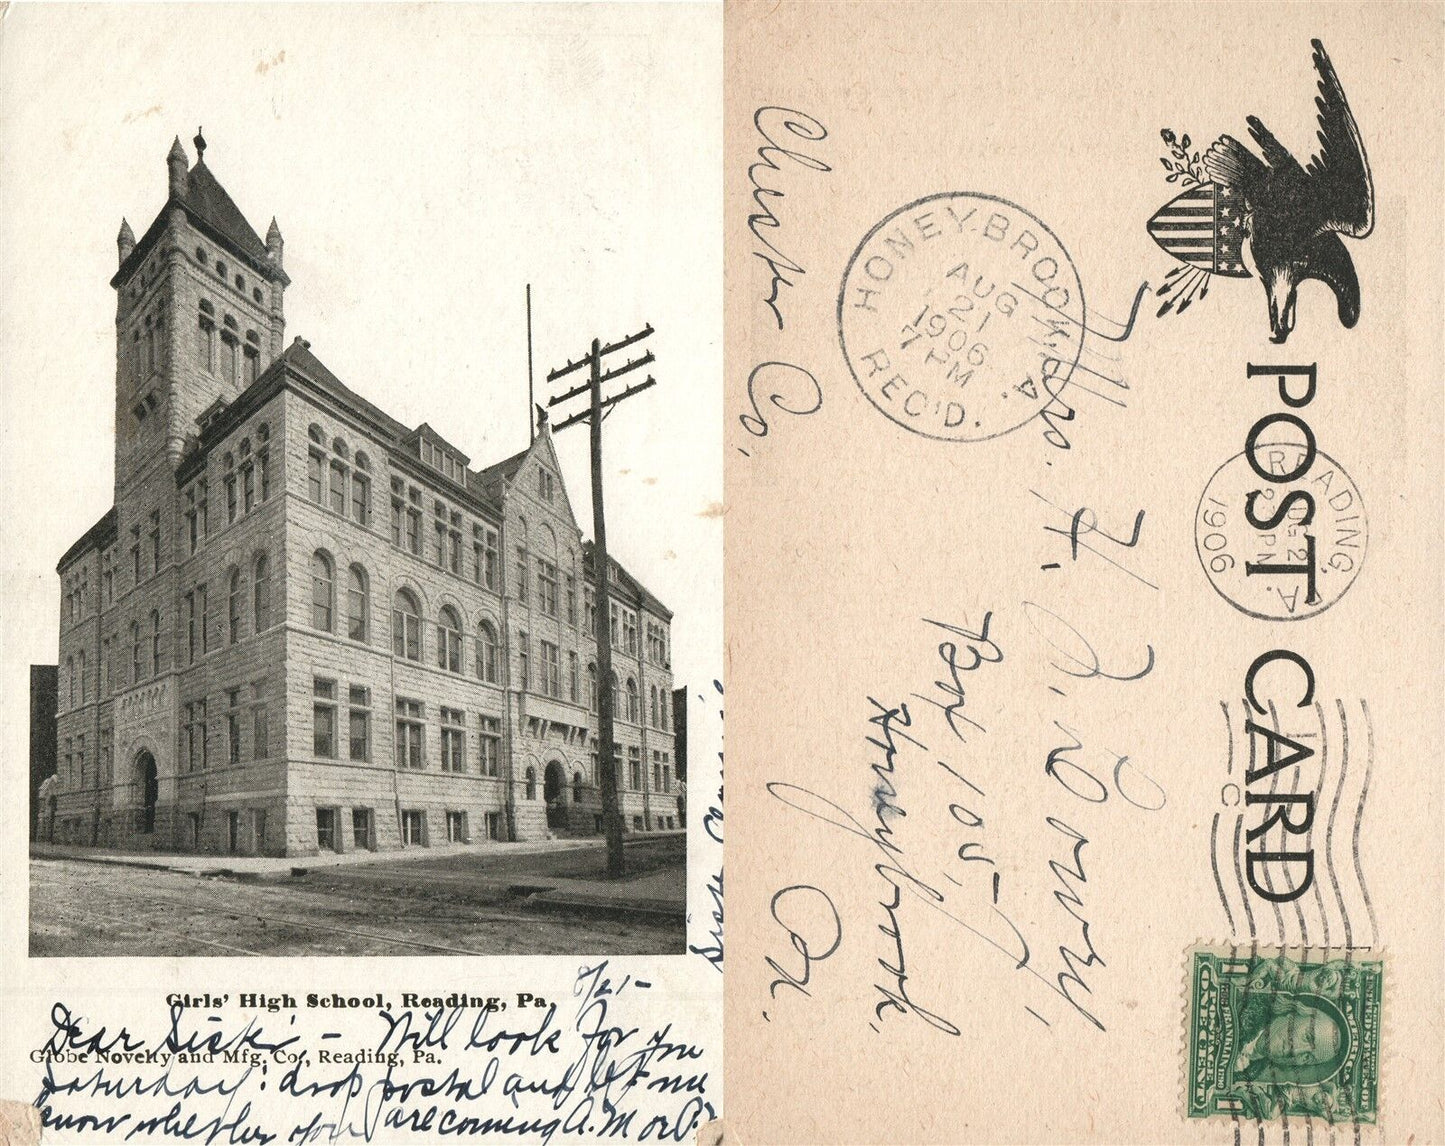 Girls' High School, Reading, Pa.
8/21-
Dear Siske - Will look for you
Globe Novelty and Mfg. Co., Reading, Pa.
Saturday; drop postal and let me
know whether you are coming A.M or P.
POST CARD
READING,
PA.
1906
HONEY.BROOK. PA.
AUG
21
1906
7 PM
REC'D.
Mrs. H.
Box 105,
Honeybrook,
Chester Co, Pa.